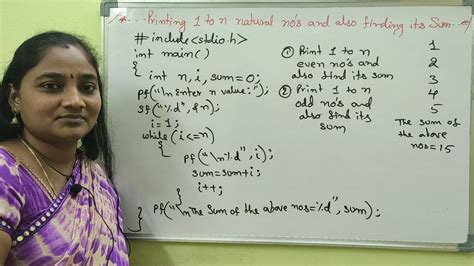 /*... Printing 1 to n natural no's and also finding its Sum. */
#include<stdio.h>
int main()
{ int n, i, sum=0;
pf("\n Enter n value:");
sf("%d", &n);
i=1;
while (i<=n)
{ pf("\n%d", i);
sum=sum+i;
i++;
}
pf("\nThe Sum of the above nos=%d", sum);
}
① Print 1 to n
even no's and
also find its sum
② Print 1 to n
odd no's and
also find its
sum
1
2
3
4
5
The sum of
the above
nos=15